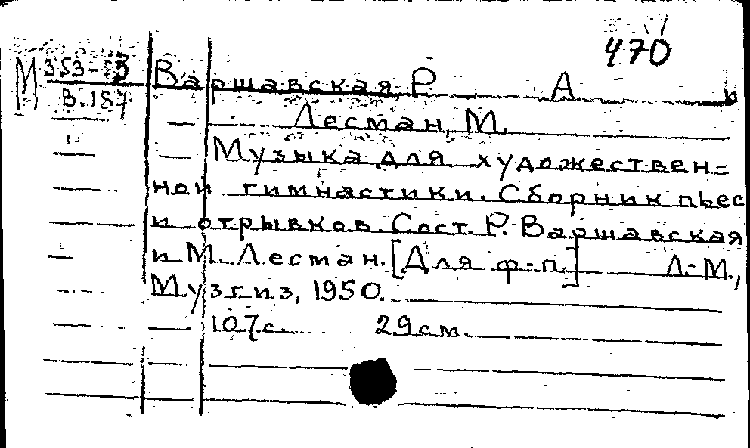 470
М 353-55 Варшавская Р А и
В.187
Лесман, М.
Музыка для художествен=
ной гимнастики. Сборник пьес
и отрывков. Сост. Р. Варшавская
и М. Лесман. [Для ф-п.] Л.-М.,
Музгиз, 1950.
107 с. 29 см.